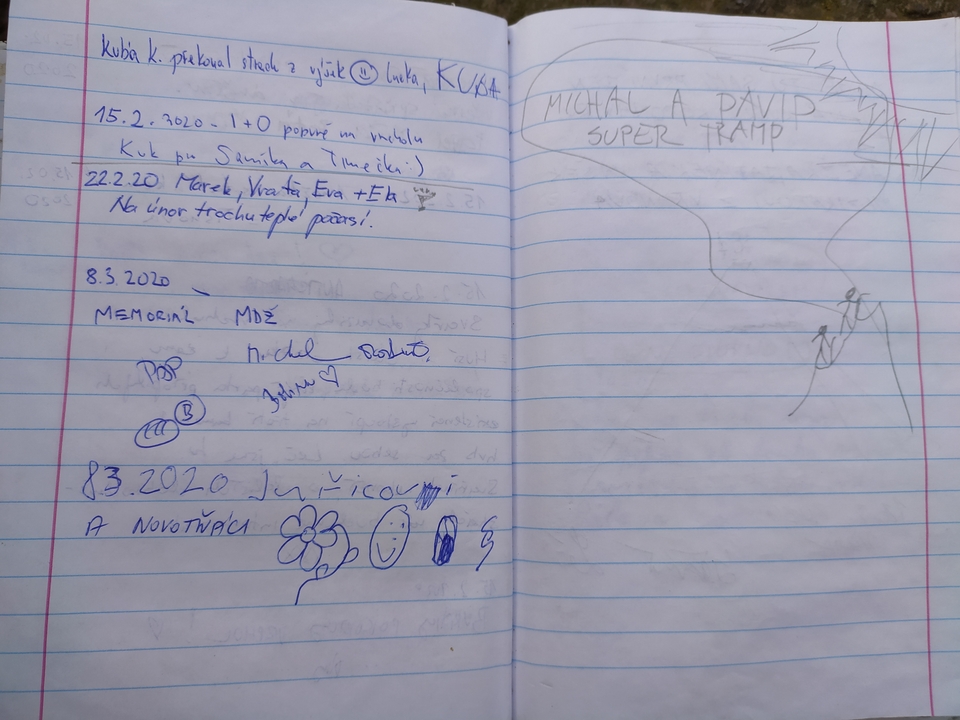 Kuba K. překonal strach z výšek Lucka, KUBA
15.2.2020 - I+O poprvé na vrcholu
Kuk pro Samíka a Timečka :)
22.2.20 Marek, Vraťa, Eva + Ela
Na únor trochu teplé počasí.
8.3.2020
MEMORIÁL MDŽ
Michal
PDP
B
8.3.2020 Juřicovi
A NOVOTŇÁCI
MICHAL A DAVID
SUPER TRAMP